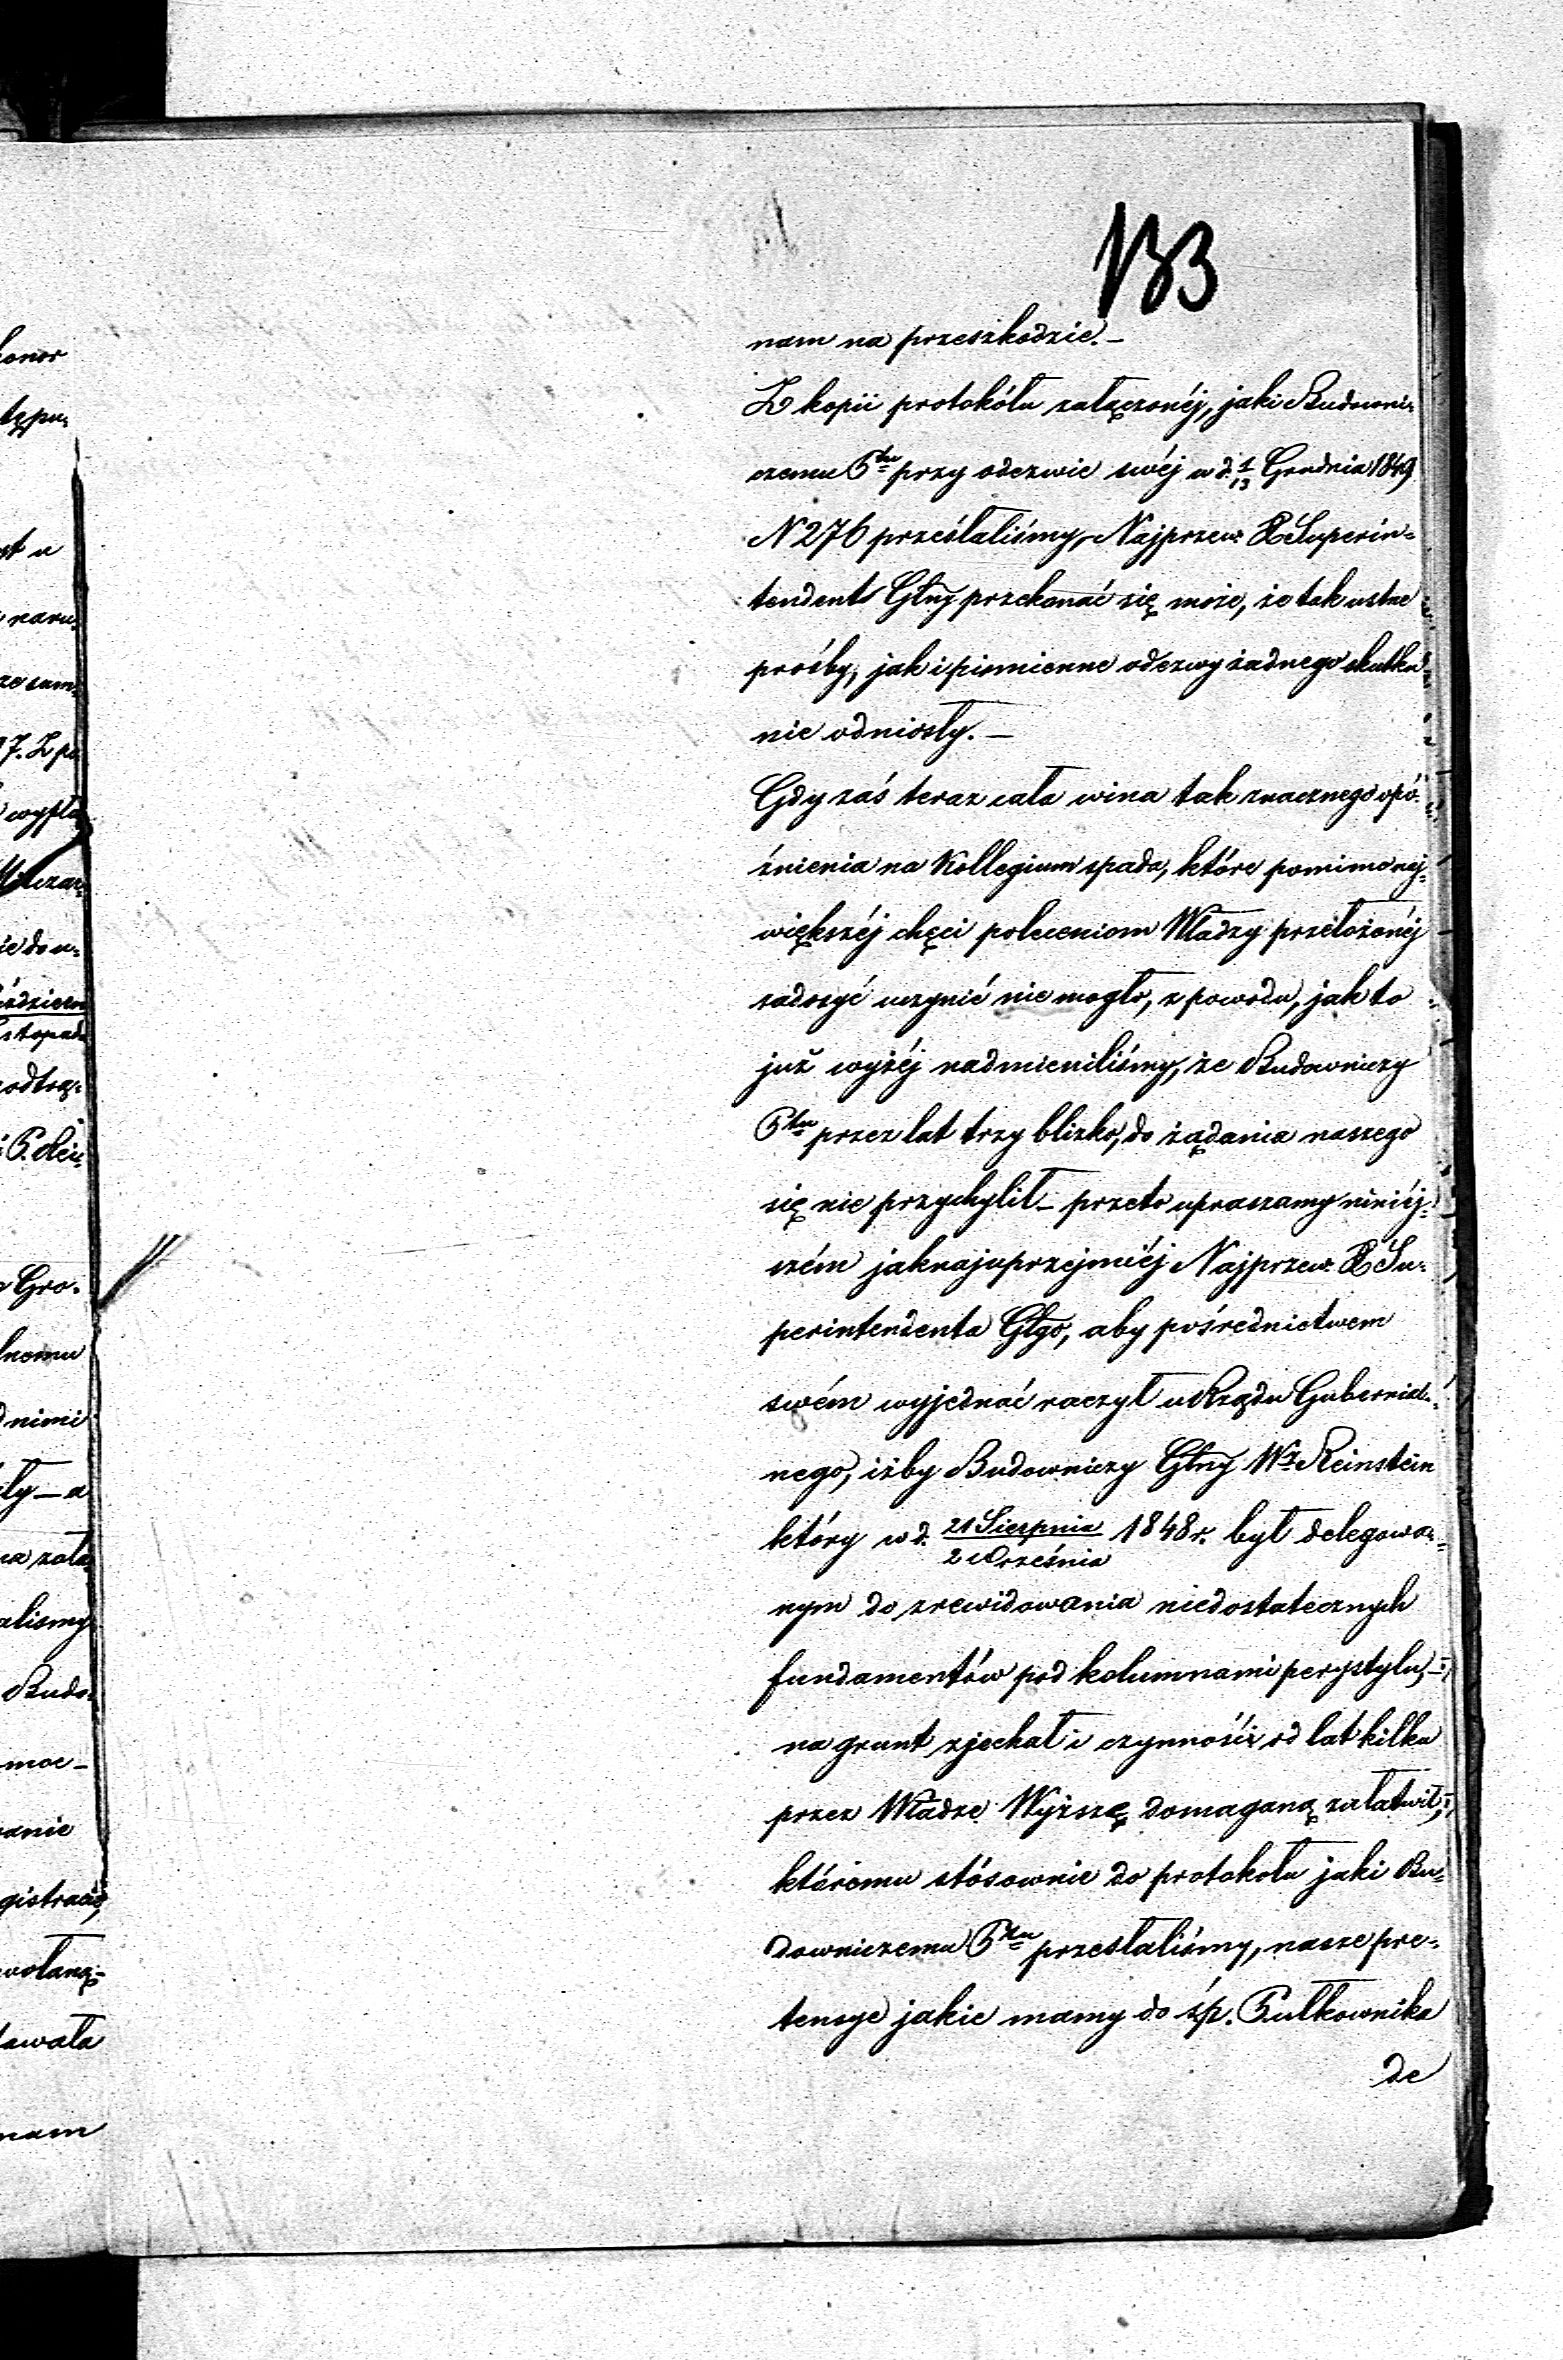 133
nam na przeszkodzie. –
Z kopii protokółu załączonéj, jaki Budowni=
czemu Ptu przy odezwie swéj w d. 1/13 Grudnia 1849
N 276 przesłaliśmy, Najprzew. X Superin=
tendent Głny przekonać się może, że tak ustne
prośby, jak i pismienne odezwy żadnego skutku
nie odniosły. –
Gdy zaś teraz cała wina tak znacznego opó=
źnienia na Kollegium spada, które pomimo naj=
większéj chęci poleceniom Władzy przełożonéj
zadosyć uczynić nie mogło, z powodu, jak to
już wyżéj nadmieniliśmy, że Budowniczy
Ptu przez lat trzy blizko, do żądania naszego
się nie przychylił – przeto upraszamy niniéj=
szém jaknajuprzejmiéj Najprzew. X Su=
perintendenta Głgo, aby pośrednictwem
swém wyjednać raczył u Rządu Gubernial=
nego, iżby Budowniczy Głny Wz Reinstein
który w d. 21 Sierpnia/2 Września 1848 r. był delegowa=
nym do zrewidowania niedostatecznych
fundamentów pod kolumnami perystylu, –
na grunt zjechał i czynność od lat kilku
przez Władze Wyższą domaganą załatwił,
któremu stósownie do protokołu jaki Bu=
downiczemu Ptu przesłaliśmy, nasze pre=
tensye jakie mamy do śp. Pułkownika
de
konor
stępu=
naru=
ze sam=
7. Z po
wypła
odtrą=
Gro=
lnemu
nimi
ły – a
aliśmy
Budo=
moc –
anie
wołaną –
dawała
nam